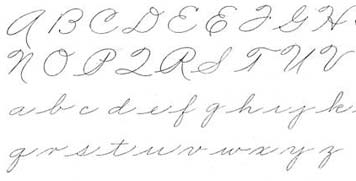 A B C D E E F G H
N O P Q R S T U V
a b c d e f g h i j k
q r s t u v w x y z